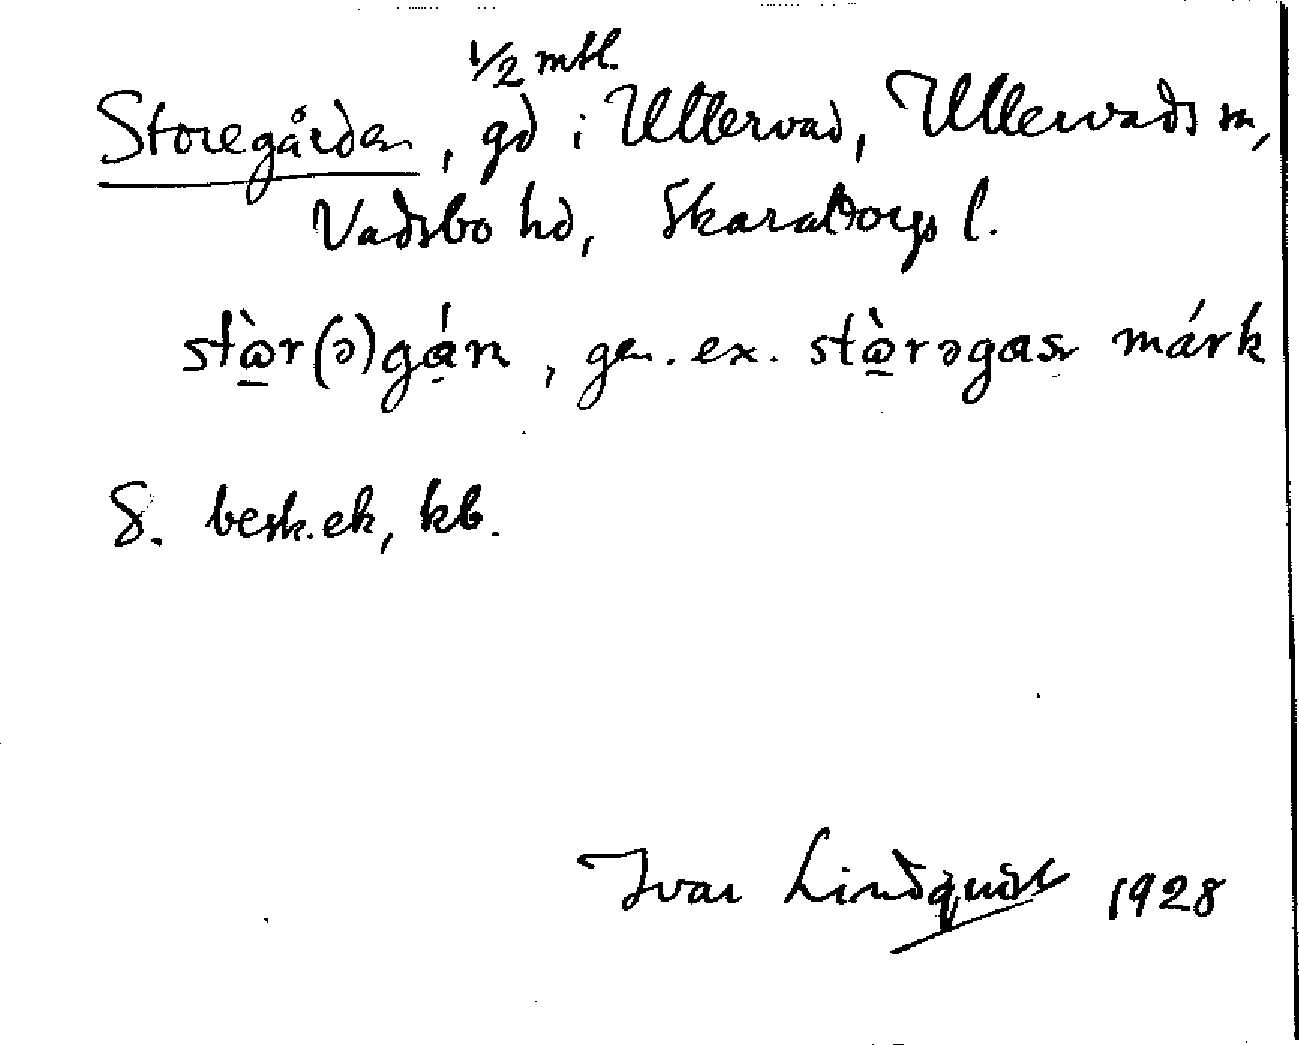 1/2 mtl.
Storegården, gd i Ullervad, Ullervads sn,
Vadsbo hd, Skaraborgs l.
stɷ̠̀r(ə)gɑ́n, gen. ex. stɷ̠̀rəgɑsr márk
8. besk. ek, kb.
Ivar Lindquist 1928